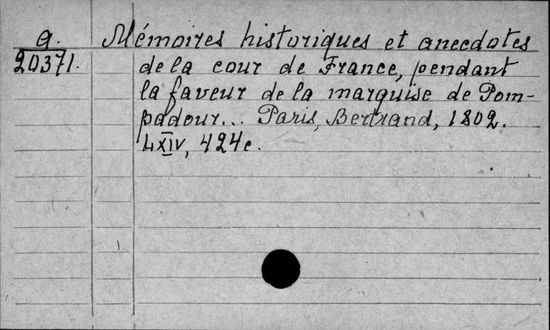 a. Mémoires historiques et anecdotes
20371. de la cour de France, pendant
la faveur de la marquise de Pom-
padour... Paris, Bertrand, 1802.
LXIV, 424 c.